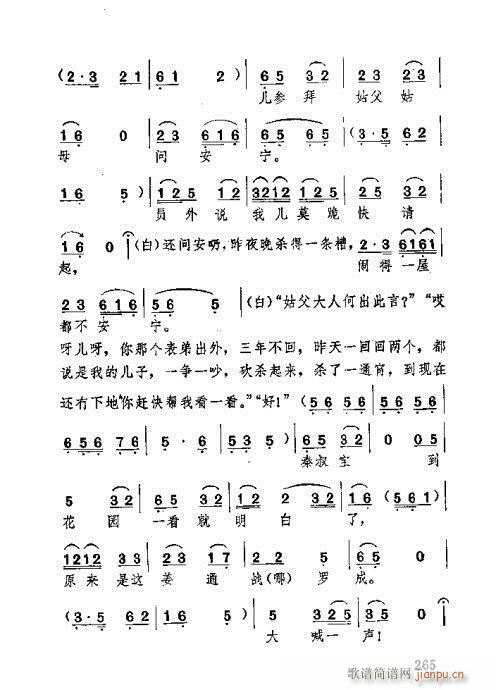 (2·3 2 1 | 6 1 2) | 6 5 3 2 | 2 3 2 3 |
儿参拜 姑父姑
1 6 0 | 2 3 6 1 6 | 5 6 5· | (3·5 6 2 |
母 问安 宁。
1 6 5) | 1 2 5 1 2 5 | 3 2 1 2 1 2 5 | 1 2 5 1 2 |
员外说 我儿莫跪快请
1 6 0 | (白)还问安呐,昨夜晚杀得一条槽, 2·3 6 1 6 1 |
起, 闹得一屋
2 3 6 1 6 | 5 6 5 | (白)“姑父大人何出此言?”“哎
都不安 宁。
呀儿呀,你那个表弟出外,三年不回,昨天一回回两个,都
说是我的儿子,一争一吵,砍杀起来,杀了一通宵,到现在
还冇下地,你赶快帮我看一看。”“好!” (5 6 5 6 | 5 6 5 6 |
6 5 6 7 6 | 5· 6 | 5 3 5) | 6 5 3 2 | 0 0 5 |
秦叔宝 到
5 3 2 | 1 2 3 2 | 2 3 2 | 1 6 (5 6 1) |
花园 一看就明白 了,
1 2 1 2 3 3 | 2 3 1 7 | 2 2 | 6 5 0 |
原来是这姜通 战(哪)罗 成。
(3·5 6 2 | 1 6 5) | 5 3 2 5 | 1 0 |
大喊一 声!
265
歌谱简谱网
jianpu.cn